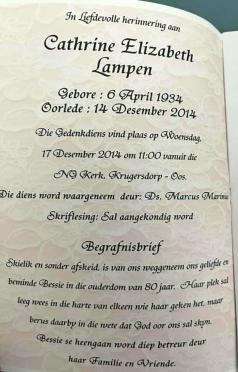 In Liefdevolle herinnering aan
Cathrine Elizabeth
Lampen
Gebore : 6 April 1934
Oorlede : 14 Desember 2014
Die Gedenkdiens vind plaas op Woensdag,
17 Desember 2014 om 11:00 vanuit die
NG Kerk, Krugersdorp - Oos.
Die diens word waargeneem deur: Ds. Marcus Marinus
Skriflesing: Sal aangekondig word
Begrafnisbrief
Skielik en sonder afskeid, is van ons weggeneem ons geliefde en
beminde Bessie in die ouderdom van 80 jaare. Haar plek sal
leeg wees in die harte van elkeen wie haar geken het, maar
berus daarby in die wete dat God oor ons sal skyn.
Bessie se heengaan word diep betreur deur
haar Familie en Vriende.